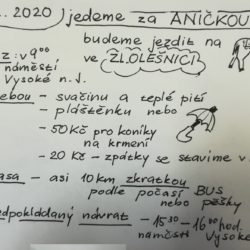 . 2020 jedeme za ANIČKOU
budeme jezdit na
z: v 9⁰⁰ ve ZLOLEŠNICI
náměstí
Vysoké n. J.
ebou - svačinu a teplé pití
- pláštěnku nebo
- 50 Kč pro koníky
na krmení
- 20 Kč - zpátky se stavíme v
asa - asi 10 km zkratkou
podle počasí BUS
nebo pěšky
edpokládaný návrat - 15³⁰ - 16⁰⁰ hod.
náměstí Vysoké